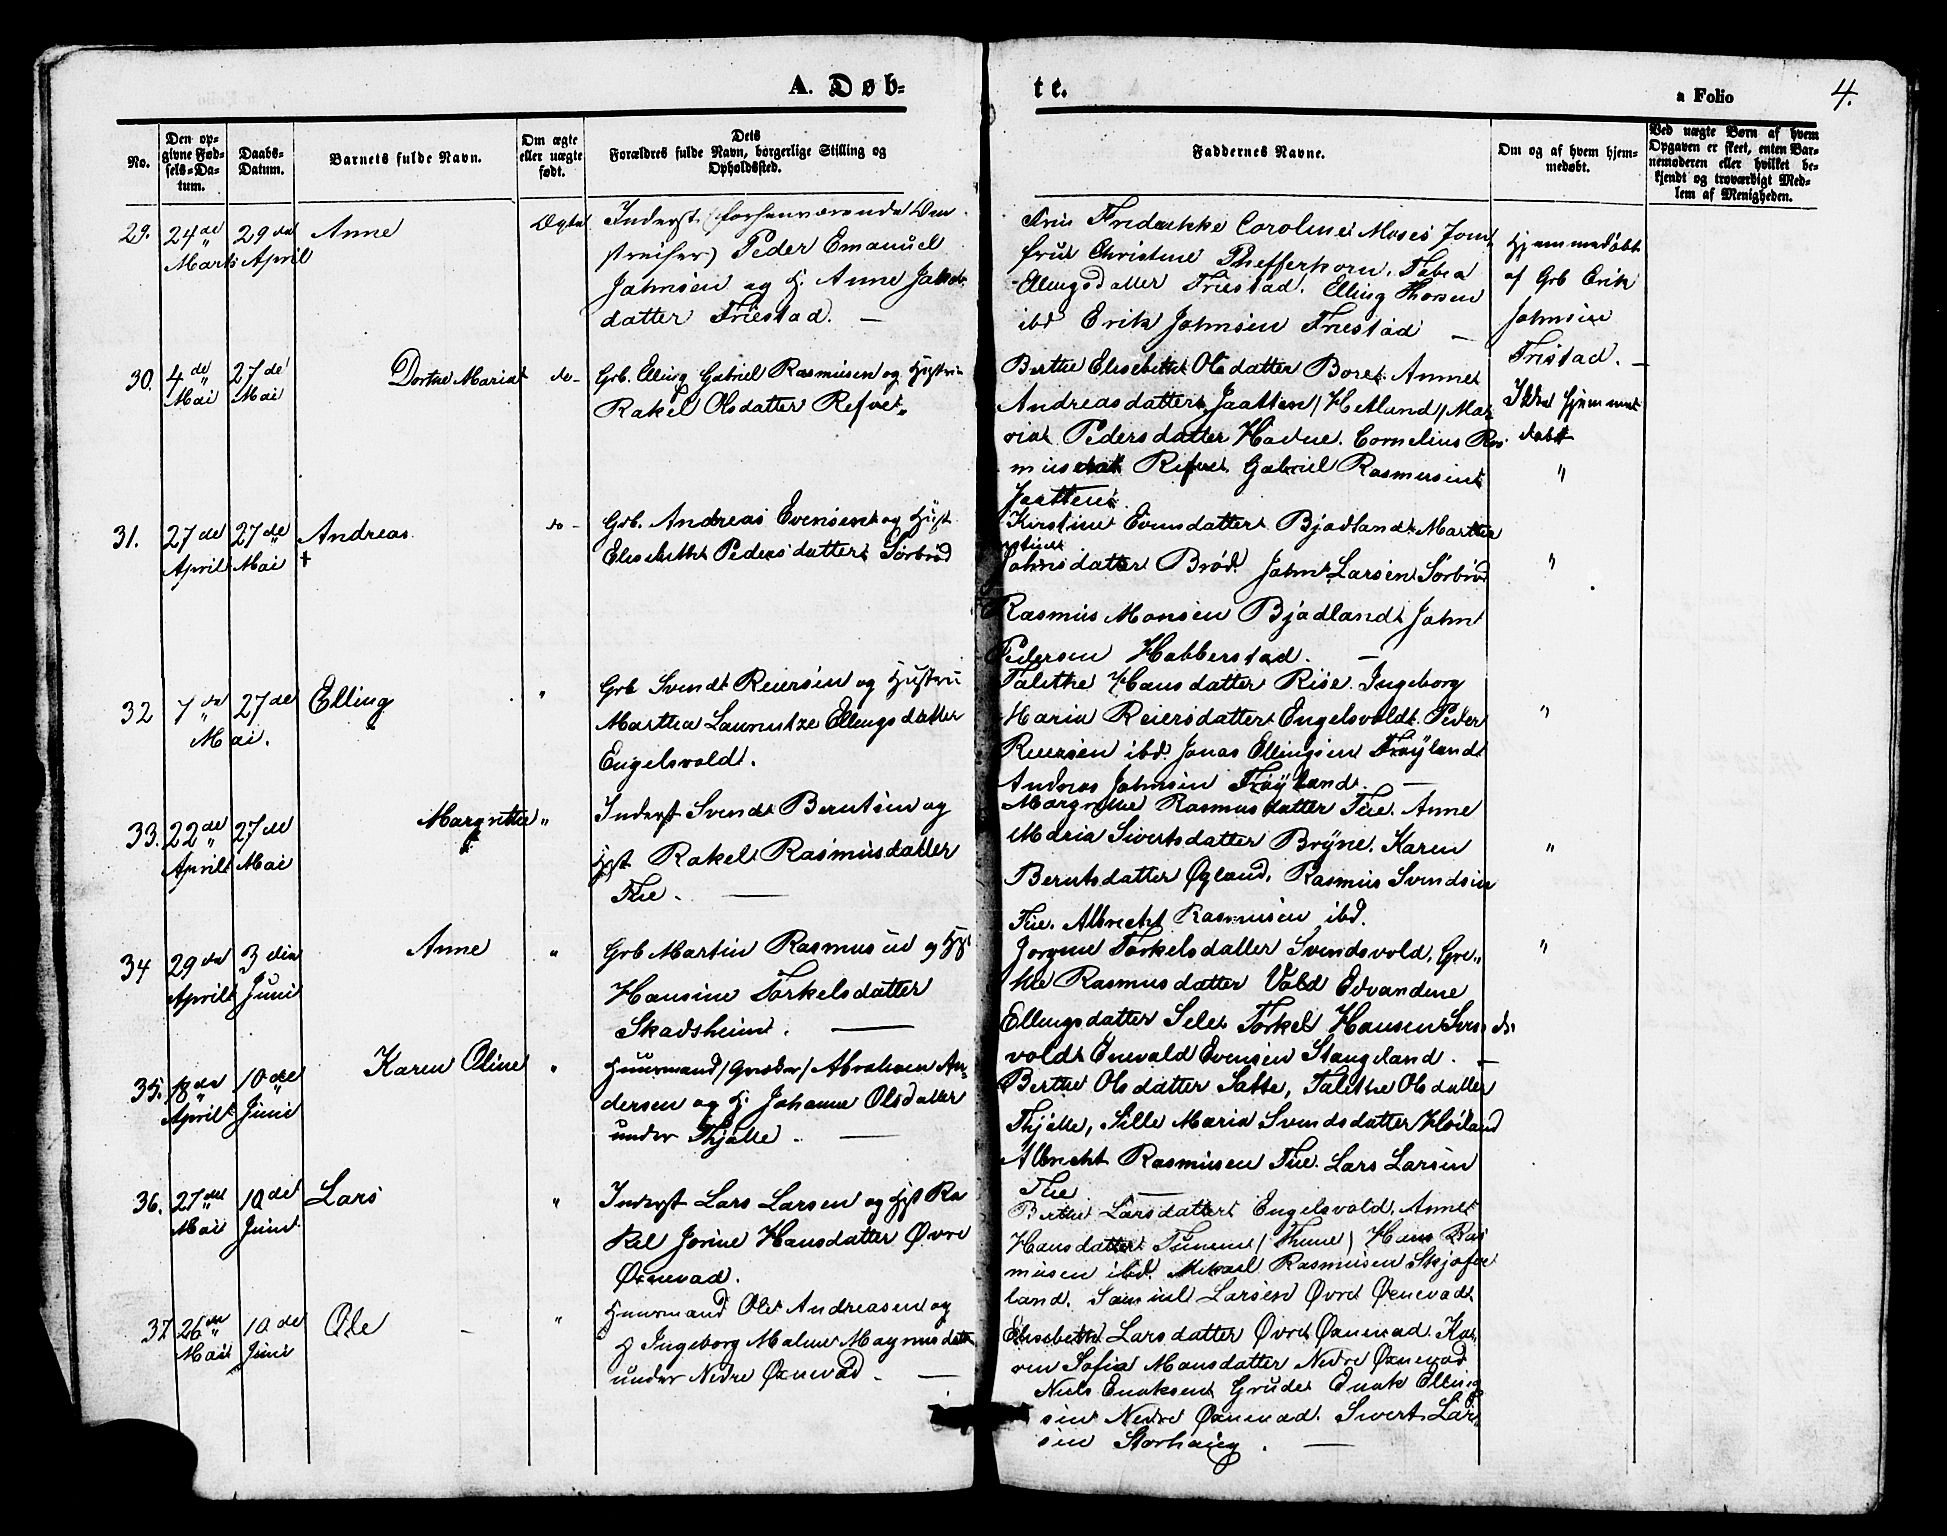 A. Døb-
te.
a Folio
4.
No.
Den op-
givne Fød-
sels-Da-
tum.
Daabs-
Datum.
Barnets fulde Navn.
Om ægte
eller uægte
født.
Dets
Forældres fulde Navn, borgerlige Stilling og
Opholdssted.
Faddernes Navne.
Om og af hvem hjem-
medøbt.
Ved uægte Børn af hvem
Opgaven er skeet, enten Bar-
nemoderen eller hvilket be-
kjendt og troværdigt Med-
lem af Menigheden.
29.
24de
Marts
29de
April
Anne
Ægte
Inderst (forhenværende
Peder Emanuel
Johnsen og H. Anne Jakobs
datter Friestad. —
Frederikke Caroline Moses Jom
fru Christine Phefferkorn. Tabea
Elingsdatter Friestad. Elling Thorsen
ibd Erik Johnsen Friestad —
Hjemmedøbt
af Grb Erik
Johnsen
Fristad. —
30.
4de
Mai
27de
Mai
Dorthe Maria
do-
Grb. Elling Gabriel Rasmusen og Hustru
Rakel Olsdatter Refvet
Berthe Elisebethe Olsdatter Bore. Anne
Andreasdatter Jaatten/Hetlund/Ma-
ria Pedersdatter Hadne. Cornelius Ras
mus Refvet Gabriel Rasmusen
Jaatten
Ikke Hjemme
døbt
"
31.
27de
April
27de
Mai
Andreas
+
do-
Grb. Andreas Evensen og Hust
Elisebethe Pedersdatter Sørbrød
Kirstine Evensdatter Bjodland Marthe
stine
Johnsdatter Brød. John Larsen Sørbrød
Rasmus Monsen Bjodland John
Pedersen Hobberstad. —
"
32
7de
Mai.
27de
Elling
"
Grb Svend Reiersen og Hustru
Marthea Lauritze Ellingsdatter
Engelsvold.
Talethe Hansdatter Rise. Ingeborg
Maria Reiersdatter Engelsvold. Peder
Reiersen ibd. Jonas Ellingsen Frøyland
Andreas Johnsen Frøyland. —
"
33.
22de
April
27de
Mai
Margrethe
"
Inderst Svend Berntsen og
Hst Rakel Rasmusdatter
Tue. —
Margrethe Rasmusdatter Tue. Anne
Maria Sivertsdatter Bryne. Karen
Berntsdatter Øgland. Rasmus Svendsen
Tue. Albrecht Rasmusen ibd.
"
34
29de
April
3die
Juni
Anne
"
Grb Martin Rasmusen og Hst
Hansine Torkelsdatter
Skadsheim. —
Jorgine Torkelsdatter Svendsvold, Gre-
the Rasmusdatter Vold Edvandine
Ellingsdatter Sele Torkel Hansen Svends
vold Enevald Evensen Stangeland. —
"
35.
18de
April
10de
Juni
Karen Oline
"
Huusmand/Græder/Abraham An-
dersen og H. Johanne Olsdatter
under Thjøtte. —
Berthe Olsdatter Satte, Talethe Olsdatter
Thjøtte, Sille Maria Svendsdatter Høiland
Albrecht Rasmusen Tue. Lars Larsen
Tue —
36.
27de
Mai
10de
Juni
Lars
"
Inderst Lars Larsen og Hst Ra
kel Jorine Hansdatter Øvre
Øxnevad.
Berthe Larsdatter Engelsvold. Anne
Hansdatter Tunem/Thime/Hans Ras
musen ibd. Mikael Rasmusen Skjæfve
land. Samuel Larsen Øvre Øxnevad.
37
26de
Mai
10de
Juni
Ole
—
"
Huusmand Ole Andreasen og
H Ingeborg Malene Magnusdatt
under Nedre Øxnevad. —
Elisebethe Larsdatter Øvre Øxnevad. Ka-
ren Sofia Monsdatter Nedre Øxnevad
Niels Enoksen Grude Enok Elling
sen Nedre Øxnevad. Sivert Lar
sen Storhaug. —